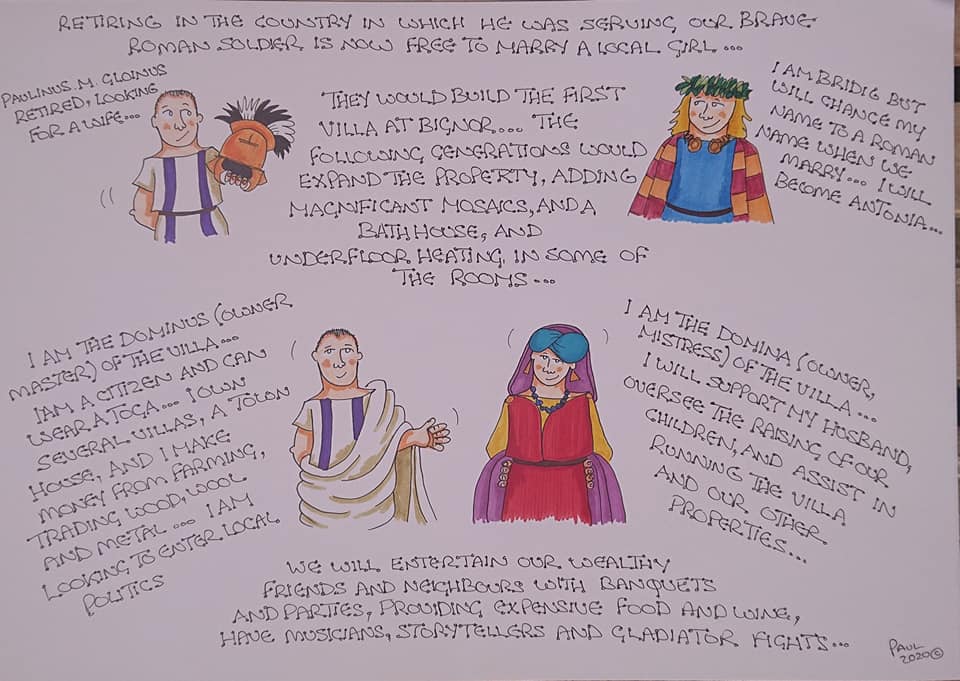 RETIRING IN THE COUNTRY IN WHICH HE WAS SERVING, OUR BRAVE
ROMAN SOLDIER IS NOW FREE TO MARRY A LOCAL GIRL...
PAULINUS. M. GLOINUS
RETIRED, LOOKING
FOR A WIFE...
THEY WOULD BUILD THE FIRST
VILLA AT BIGNOR.... THE
FOLLOWING GENERATIONS WOULD
EXPAND THE PROPERTY, ADDING
MAGNIFICANT MOSAICS, AND A
BATH HOUSE, AND
UNDERFLOOR HEATING, IN SOME OF
THE ROOMS...
I AM BRIDIE BUT
WILL CHANGE MY
NAME TO A ROMAN
NAME WHEN WE
MARRY... I WILL
BECOME ANTONIA...
I AM THE DOMINUS (OWNER
MASTER) OF THE VILLA...
I AM A CITIZEN AND CAN
WEAR A TOGA... I OWN
SEVERAL VILLAS, A TOWN
HOUSE, AND I MAKE
MONEY FROM FARMING,
TRADING WOOD, WOOL
AND METAL .... I AM
LOOKING TO ENTER LOCAL
POLITICS
I AM THE DOMINA (OWNER,
MISTRESS) OF THE VILLA...
I WILL SUPPORT MY HUSBAND,
OVERSEE THE RAISING OF OUR
CHILDREN, AND ASSIST IN
RUNNING THE VILLA
AND OUR OTHER
PROPERTIES...
WE WILL ENTERTAIN OUR WEALTHY
FRIENDS AND NEIGHBOURS WITH BANQUETS
AND PARTIES, PROVIDING EXPENSIVE FOOD AND WINE,
HAVE MUSICIANS, STORYTELLERS AND GLADIATOR FIGHTS...
PAUL
2020©